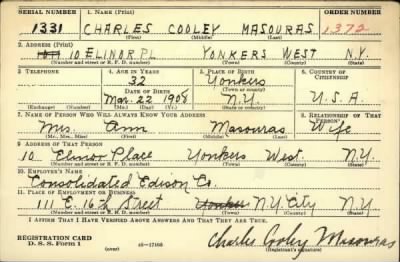 SERIAL NUMBER 1. NAME (Print) ORDER NUMBER
1331 CHARLES COOLEY MASOURAS 1372
(First) (Middle) (Last)
2. ADDRESS (Print)
10 ELINOR PL YONKERS WEST N.Y.
(Number and street or R. F. D. number) (Town) (County) (State)
3. TELEPHONE 4. AGE IN YEARS 5. PLACE OF BIRTH 6. COUNTRY OF CITIZENSHIP
32 Yonkers
DATE OF BIRTH (Town or county)
Mar. 22 1908 N.Y. U.S.A
(Exchange) (Number) (Mo.) (Day) (Yr.) (State or country)
7. NAME OF PERSON WHO WILL ALWAYS KNOW YOUR ADDRESS 8. RELATIONSHIP OF THAT PERSON
Mrs. Ann Masouras Wife
(Mr., Mrs., Miss) (First) (Middle) (Last)
9. ADDRESS OF THAT PERSON
10 Elinor Place Yonkers West. N.Y.
(Number and street or R. F. D. number) (Town) (County) (State)
10. EMPLOYER'S NAME
Consolidated Edison Co.
11. PLACE OF EMPLOYMENT OR BUSINESS
111 E. 16th Street Yonkers N.Y. City N.Y.
(Number and street or R. F. D. number) (Town) (County) (State)
I AFFIRM THAT I HAVE VERIFIED ABOVE ANSWERS AND THAT THEY ARE TRUE.
REGISTRATION CARD
D. S. S. Form 1 (over) 16-17105 Charles Cooley Masouras